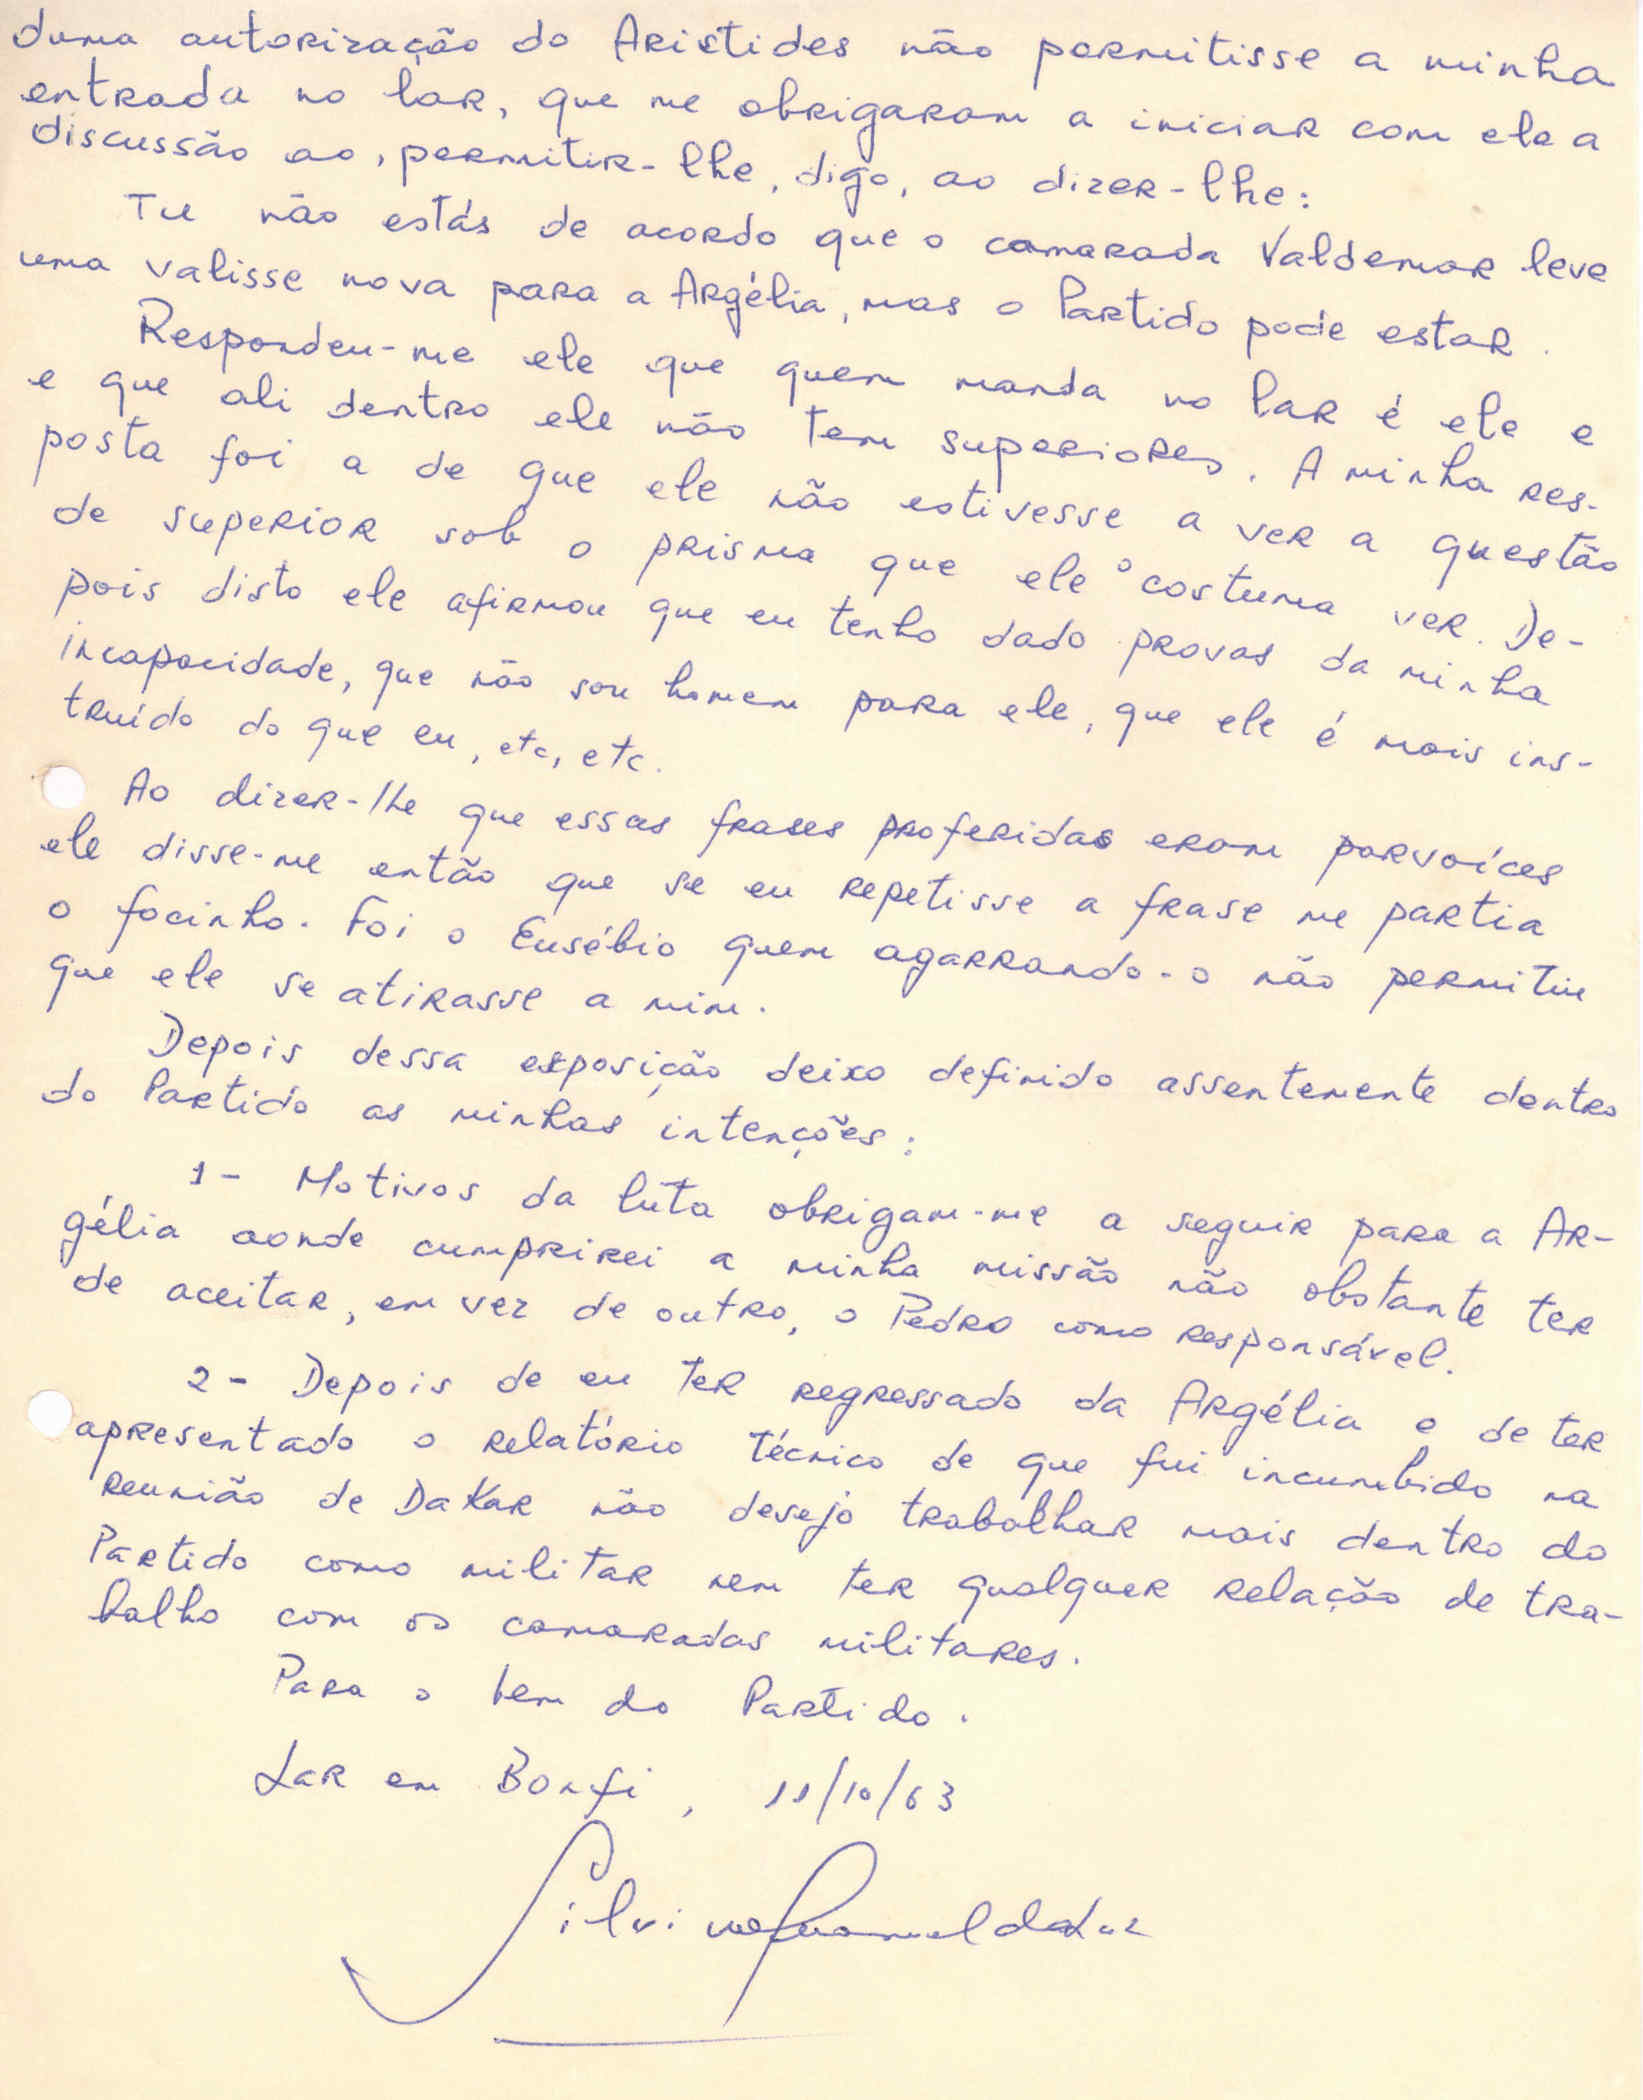 duma autorização do Aristides não permitisse a minha
entrada no lar, que me obrigaram a iniciar com ele a
discussão ao, permitir-lhe, digo, ao dizer-lhe:
Tu não estás de acordo que o camarada Valdemar leve
uma valisse nova para a Argélia, mas o Partido pode estar.
Respondeu-me ele que quem manda no lar é ele e
e que ali dentro ele não tem superiores. A minha res-
posta foi a de que ele não estivesse a ver a questão
de superior sob o prisma que ele o costuma ver. De-
pois disto ele afirmou que eu tenho dado provas da minha
incapacidade, que não sou homem para ele, que ele é mais ins-
truído do que eu, etc, etc.
Ao dizer-lhe que essas frases proferidas eram parvoíces
ele disse-me então que se eu repetisse a frase me partia
o focinho. Foi o Eusébio quem agarrando-o não permitiu
que ele se atirasse a mim.
Depois dessa exposição deixo definido assentemente dentro
do Partido as minhas intenções:
1- Motivos da luta obrigam-me a seguir para a Ar-
gélia aonde cumprirei a minha missão não obstante ter
de aceitar, em vez de outro, o Pedro como responsável.
2- Depois de eu ter regressado da Argélia e de ter
apresentado o relatório técnico de que fui incumbido na
reunião de Dakar não desejo trabalhar mais dentro do
Partido como militar nem ter qualquer relação de tra-
balho com os camaradas militares.
Para o bem do Partido.
Lar em Bonfi, 11/10/63
Silvino Manuel da Luz